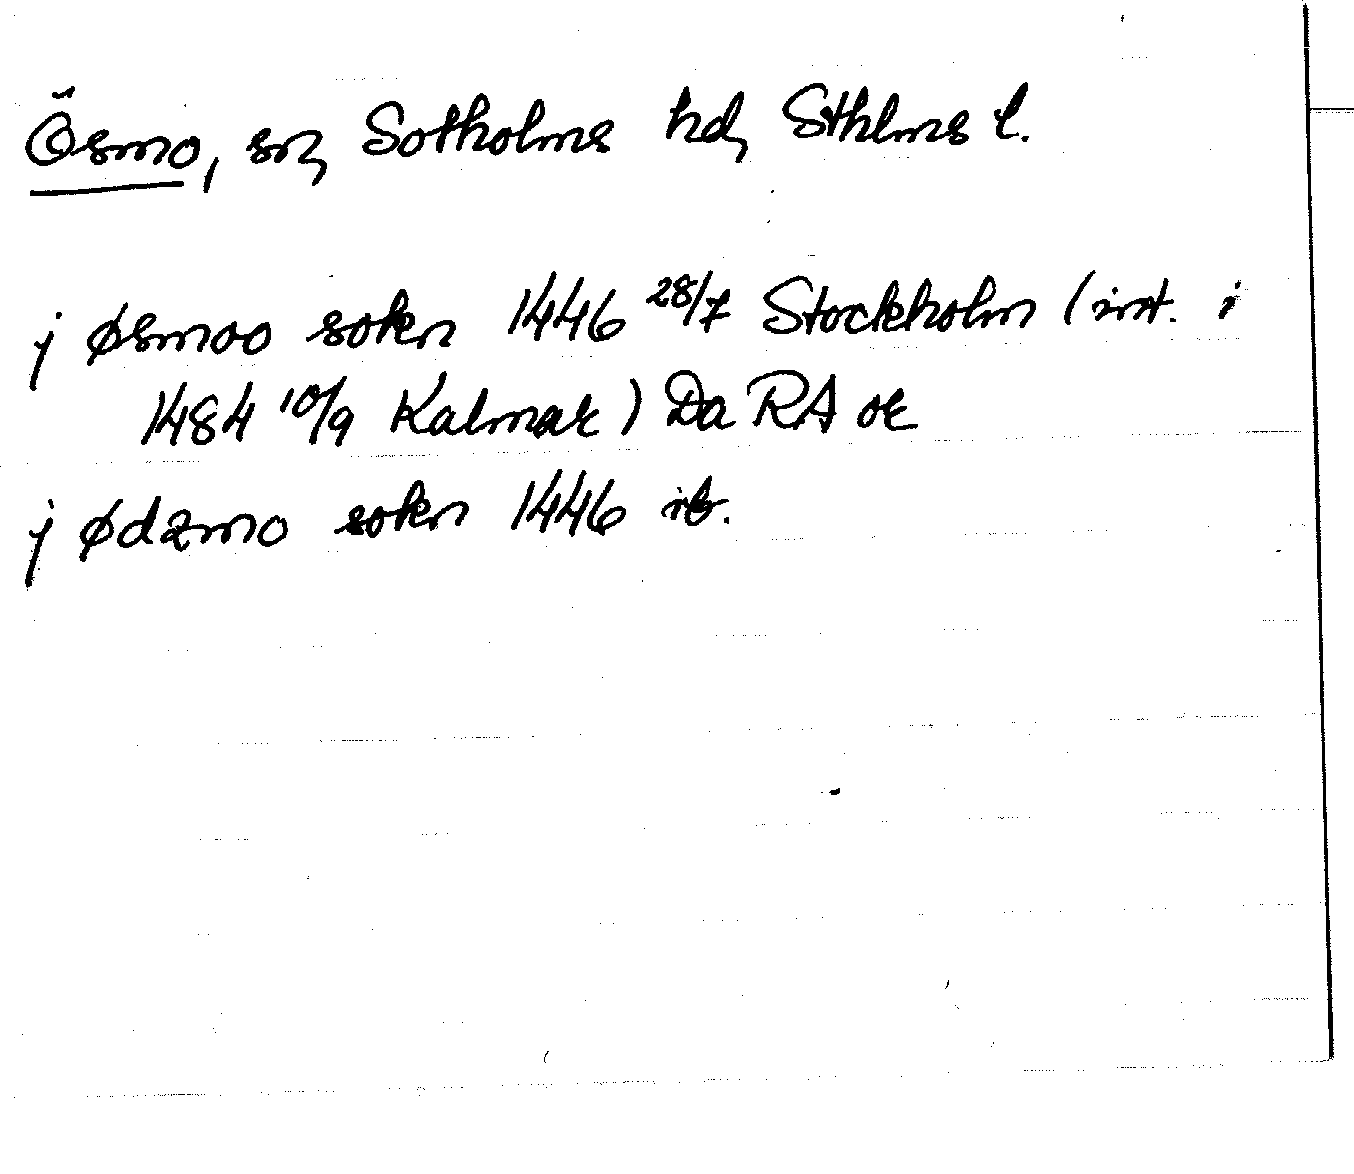 Ösmo, sn, Sotholms hd, Sthlms l.
j øsmoo sokn 1446 28/7 Stockholm (int. i
1484 10/9 Kalmar) Da RA or
j ødzmo sokn 1446 ib.